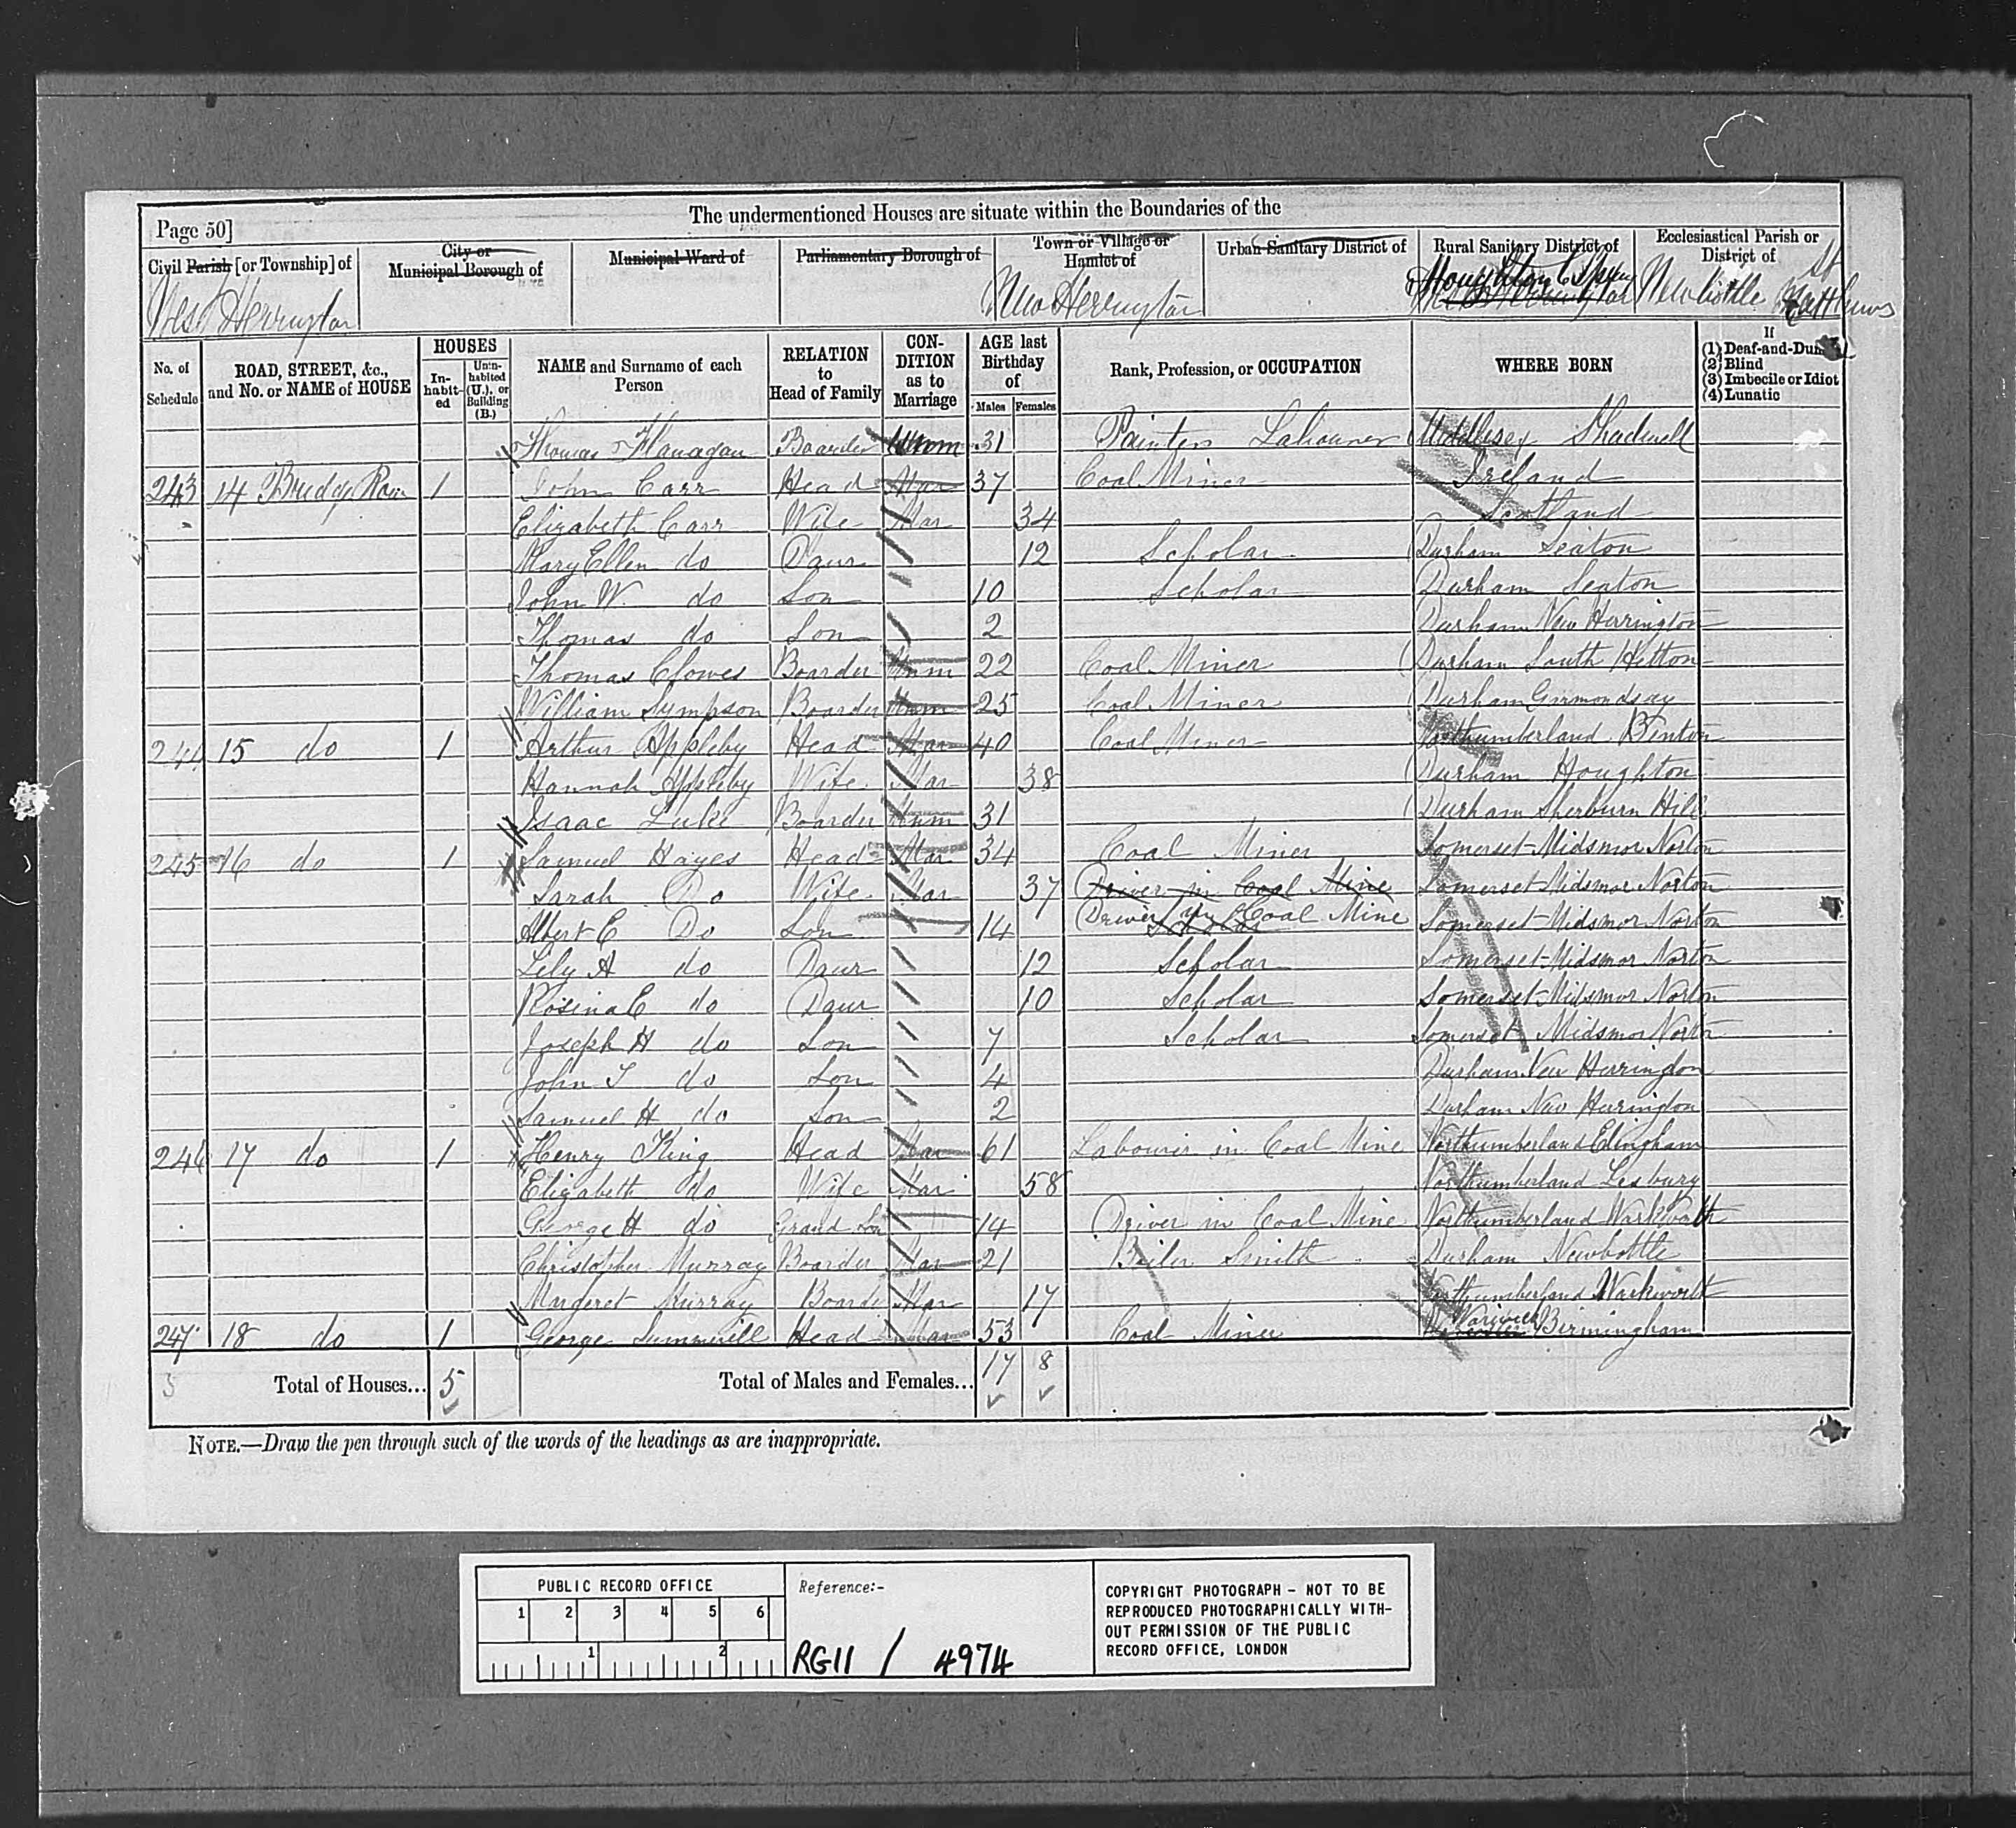 The undermentioned Houses are situate within the Boundaries of the
Page 50]
Civil Parish [or Township] of
City or Municipal Borough of
Municipal Ward of
Parliamentary Borough of
Town or Village or Hamlet of
Urban Sanitary District of
Rural Sanitary District of
Ecclesiastical Parish or District of
West Herrington
New Herrington
Houghton le Spring
Newbottle St Matthews
No. of Schedule
ROAD, STREET, &c., and No. or NAME of HOUSE
HOUSES
In-habit-ed
Unin-habited (U.), or Building (B.)
NAME and Surname of each Person
RELATION to Head of Family
CON-DITION as to Marriage
AGE last Birthday of
Males Females
Rank, Profession, or OCCUPATION
WHERE BORN
If
(1) Deaf-and-Dumb
(2) Blind
(3) Imbecile or Idiot
(4) Lunatic
Thomas Flanagan Boarder Unm 31 Painters Labourer Middlesex Shadwell
243 14 Bridge Row 1 John Carr Head Mar 37 Coal Miner Ireland
Elizabeth Carr Wife Mar 34 Scotland
Mary Ellen do Daur 12 Scholar Durham Seaton
John W. do Son 10 Scholar Durham Seaton
Thomas do Son 2 Durham New Herrington
Thomas Clowes Boarder Unm 22 Coal Miner Durham South Hetton
William Sympson Boarder Unm 25 Coal Miner Durham
244 15 do 1 Arthur Appleby Head Mar 40 Coal Miner Northumberland Benton
Hannah Appleby Wife Mar 38 Durham Houghton
Isaac Luke Boarder Unm 31 Durham Sherburn Hill
245 16 do 1 Samuel Hayes Head Mar 34 Coal Miner Somerset Midsmor Norton
Sarah Do Wife Mar 37 Driver in Coal Mine Somerset Midsmor Norton
Albert E Do Son 14 Driver in Coal Mine Scholar Somerset Midsmor Norton
Lily A do Daur 12 Scholar Somerset Midsmor Norton
Rosina E do Daur 10 Scholar Somerset Midsmor Norton
Joseph H do Son 7 Scholar Somerset Midsmor Norton
John T do Son 4 Durham New Herringdon
Samuel H do Son 2 Durham New Herringdon
246 17 do 1 Henry King Head Mar 61 Labourer in Coal Mine Northumberland Edlingham
Elizabeth do Wife Mar 58 Northumberland Lesbury
George H do Grand Son 14 Driver in Coal Mine Northumberland Warkwoth
Christopher Murray Boarder Mar 21 Boiler Smith Durham Newbottle
Margeret Murray Boarder Mar 17 Northumberland Warkworth
247 18 do 1 George Summerill Head Mar 53 Coal Miner Warwick Birmingham
5 Total of Houses... 5 Total of Males and Females... 17 8
NOTE.—Draw the pen through such of the words of the headings as are inappropriate.
PUBLIC RECORD OFFICE
1 2 3 4 5 6
1 2
Reference:-
RG11 / 4974
COPYRIGHT PHOTOGRAPH - NOT TO BE
REPRODUCED PHOTOGRAPHICALLY WITH-
OUT PERMISSION OF THE PUBLIC
RECORD OFFICE, LONDON